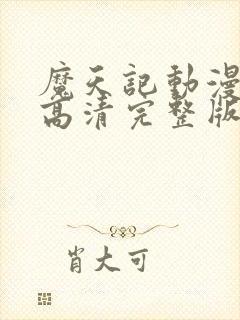 魔天記動漫
高清完整版
肖大可